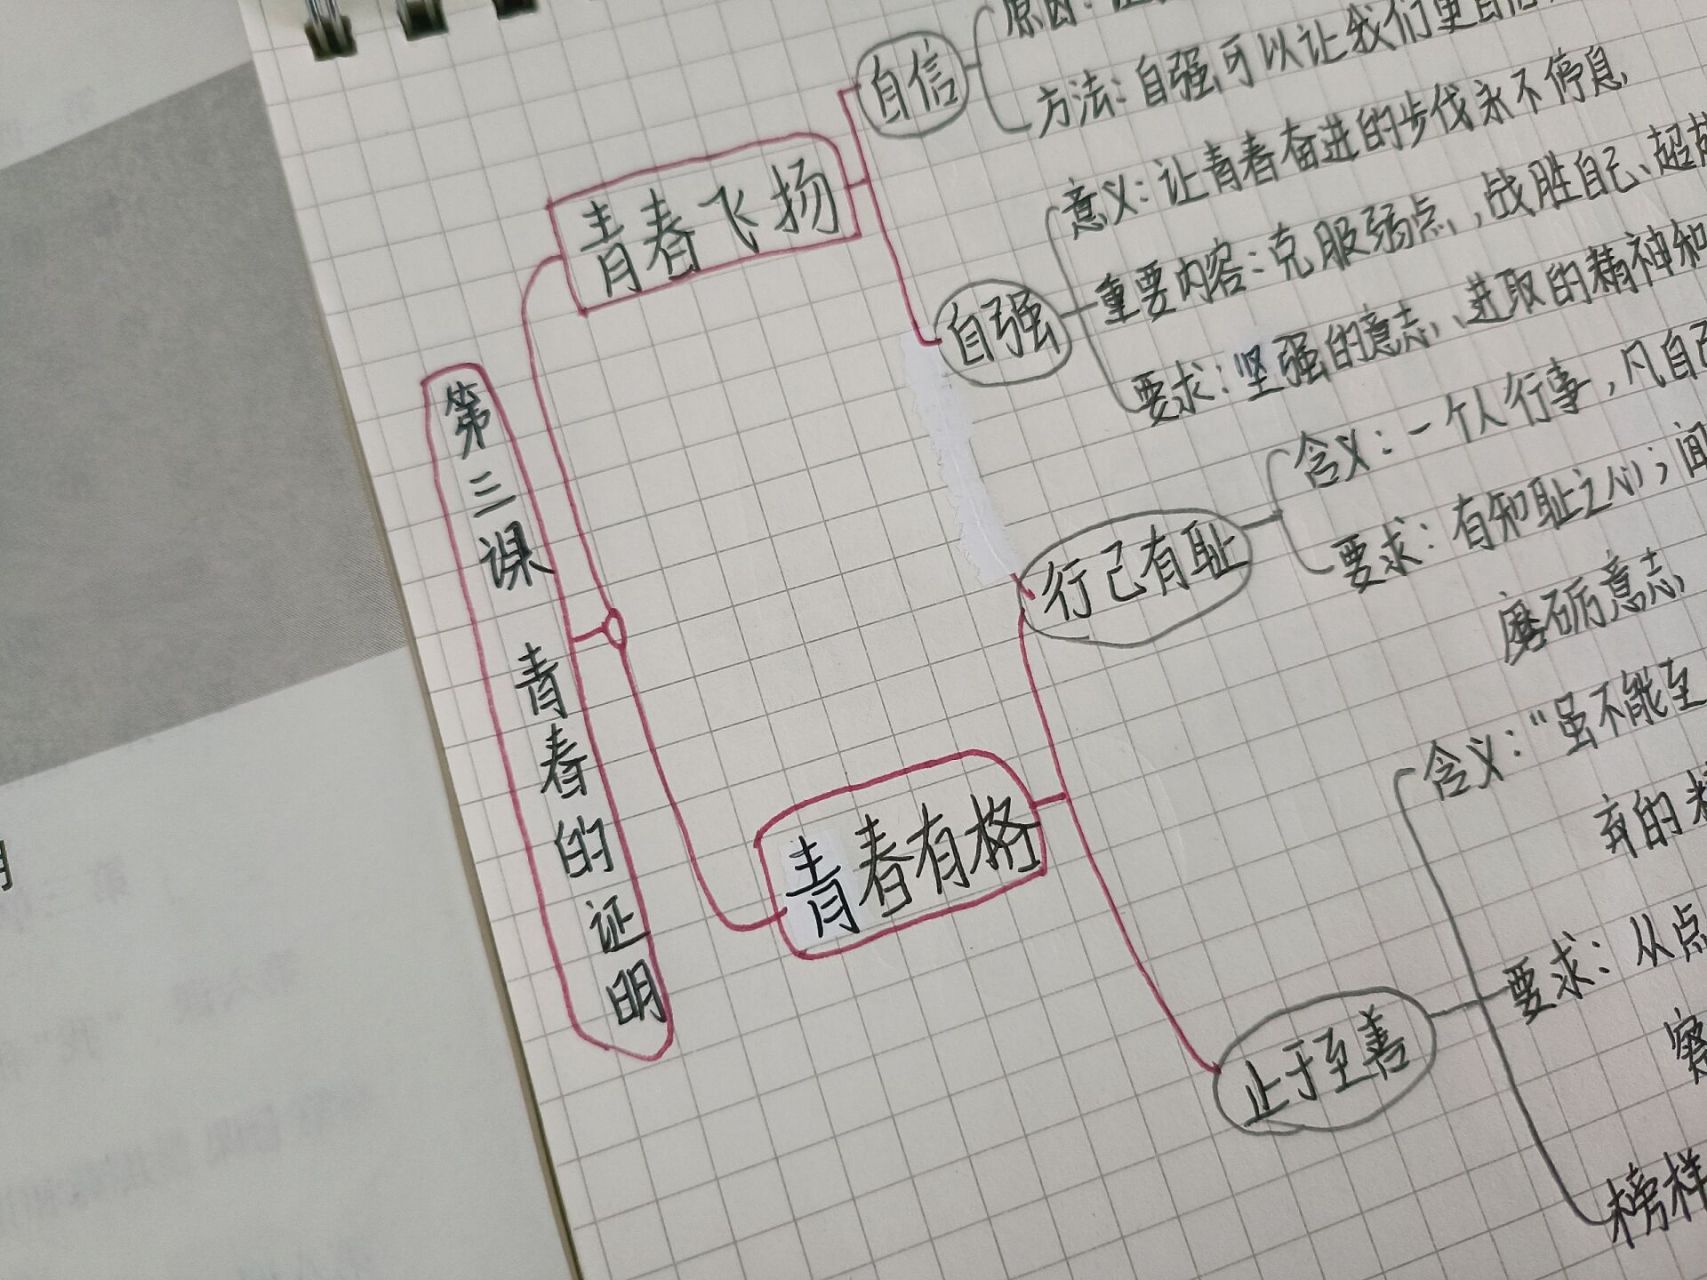 第三课 青春的证明
青春飞扬
自信
原因:
方法:自强可以让我们更自信
自强
意义:让青春奋进的步伐永不停息
重要内容:克服弱点、战胜自己、超越
要求:坚强的意志、进取的精神和
青春有格
行己有耻
含义:一个人行事,凡自己
要求:有知耻之心;
磨砺意志
止于至善
含义:“虽不能至
弃的精
要求:从点
榜样